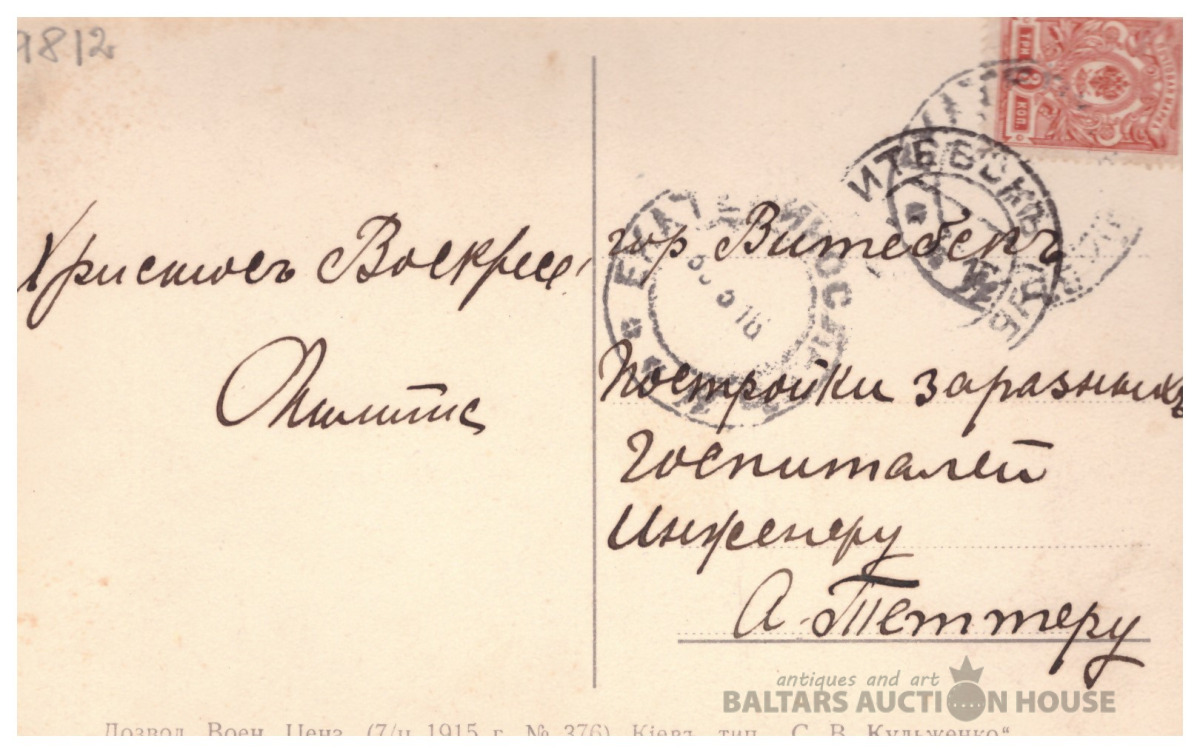 9812
Христосъ Воскресе,
гор Витебскъ
Постройки заразныхъ
Госпиталей
Инженеру
А. Теттеру
ТРИ 3 КОП.
ИТЕБСКЪ
18
antiques and art
BALTARS AUCTION HOUSE
Дозвол. Воен. Ценз. (7/II 1915 г. № 376) Кіевъ, тип. „С. В. Кульженко“